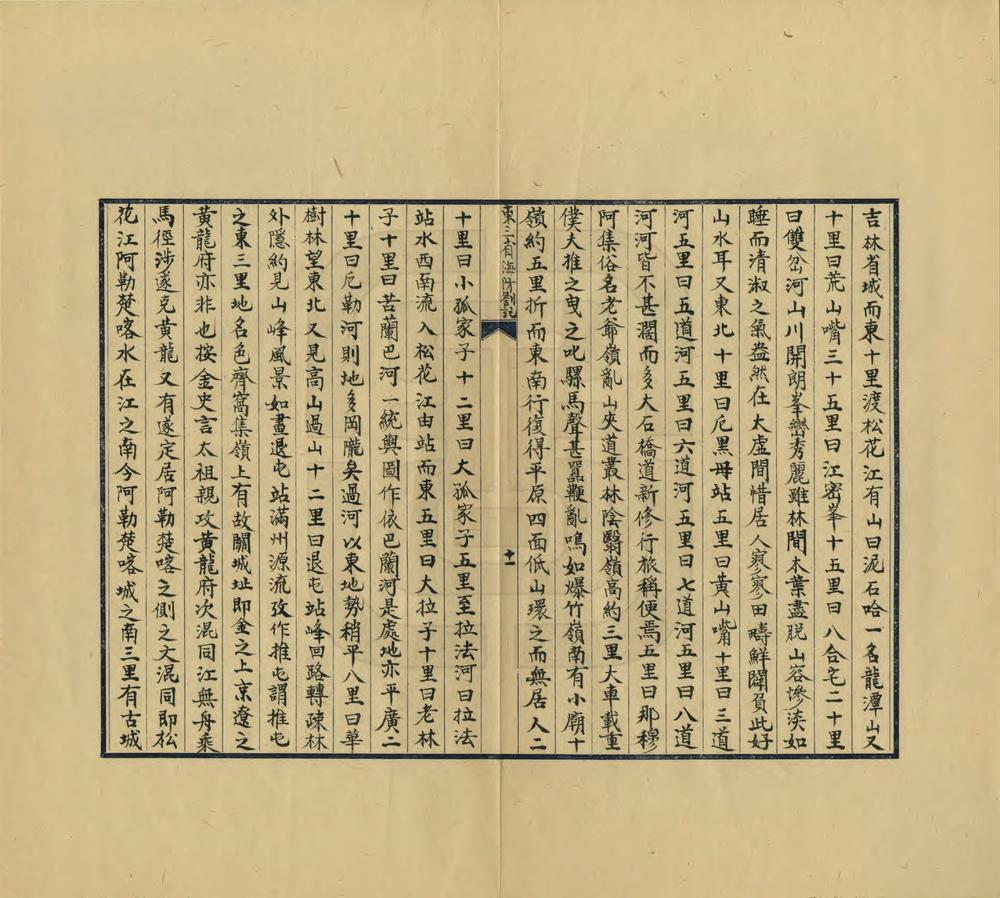 吉林省城而東十里渡松花江有山曰泥石哈一名龍潭山又
十里曰荒山嘴三十五里曰江密峯十五里曰八合宅二十里
曰雙岔河山川開朗峯巒秀麗雖林間木葉盡脱山容慘淡如
睡而清淑之氣盎然在太虛間惜居人寥寥田疇鮮闢負此好
山水耳又東北十里曰厄黑毋站五里曰黃山嘴十里曰三道
河五里曰五道河五里曰六道河五里曰七道河五里曰八道
河河皆不甚濶而多大石橋道新修行旅稱便焉五里曰那穆
阿集俗名老爺嶺亂山夾道叢林陰翳嶺高約三里大車載重
僕夫推之曳之叱騾馬聲甚囂鞭亂鳴如爆竹嶺南有小廟十
嶺約五里折而東南行復得平原四面低山環之而無居人二
東三省海防劄記
十一
十里曰小孤家子十二里曰大孤家子五里至拉法河曰拉法
站水西南流入松花江由站而東五里曰大拉子十里曰老林
子十里曰苦蘭巴河一統輿圖作依巴蘭河是處地亦平廣二
十里曰厄勒河則地多岡隴矣過河以東地勢稍平八里曰華
樹林望東北又見高山過山十二里曰退屯站峰回路轉疎林
外隱約見山峰風景如畫退屯站滿州源流攷作推屯謂推屯
之東三里地名色齊窩集嶺上有故關城址即金之上京遼之
黃龍府亦非也按金史言太祖親攻黃龍府次混同江無舟乘
馬徑涉遂克黃龍又有遂定居阿勒楚喀之側之文混同即松
花江阿勒楚喀水在江之南今阿勒楚喀城之南三里有古城